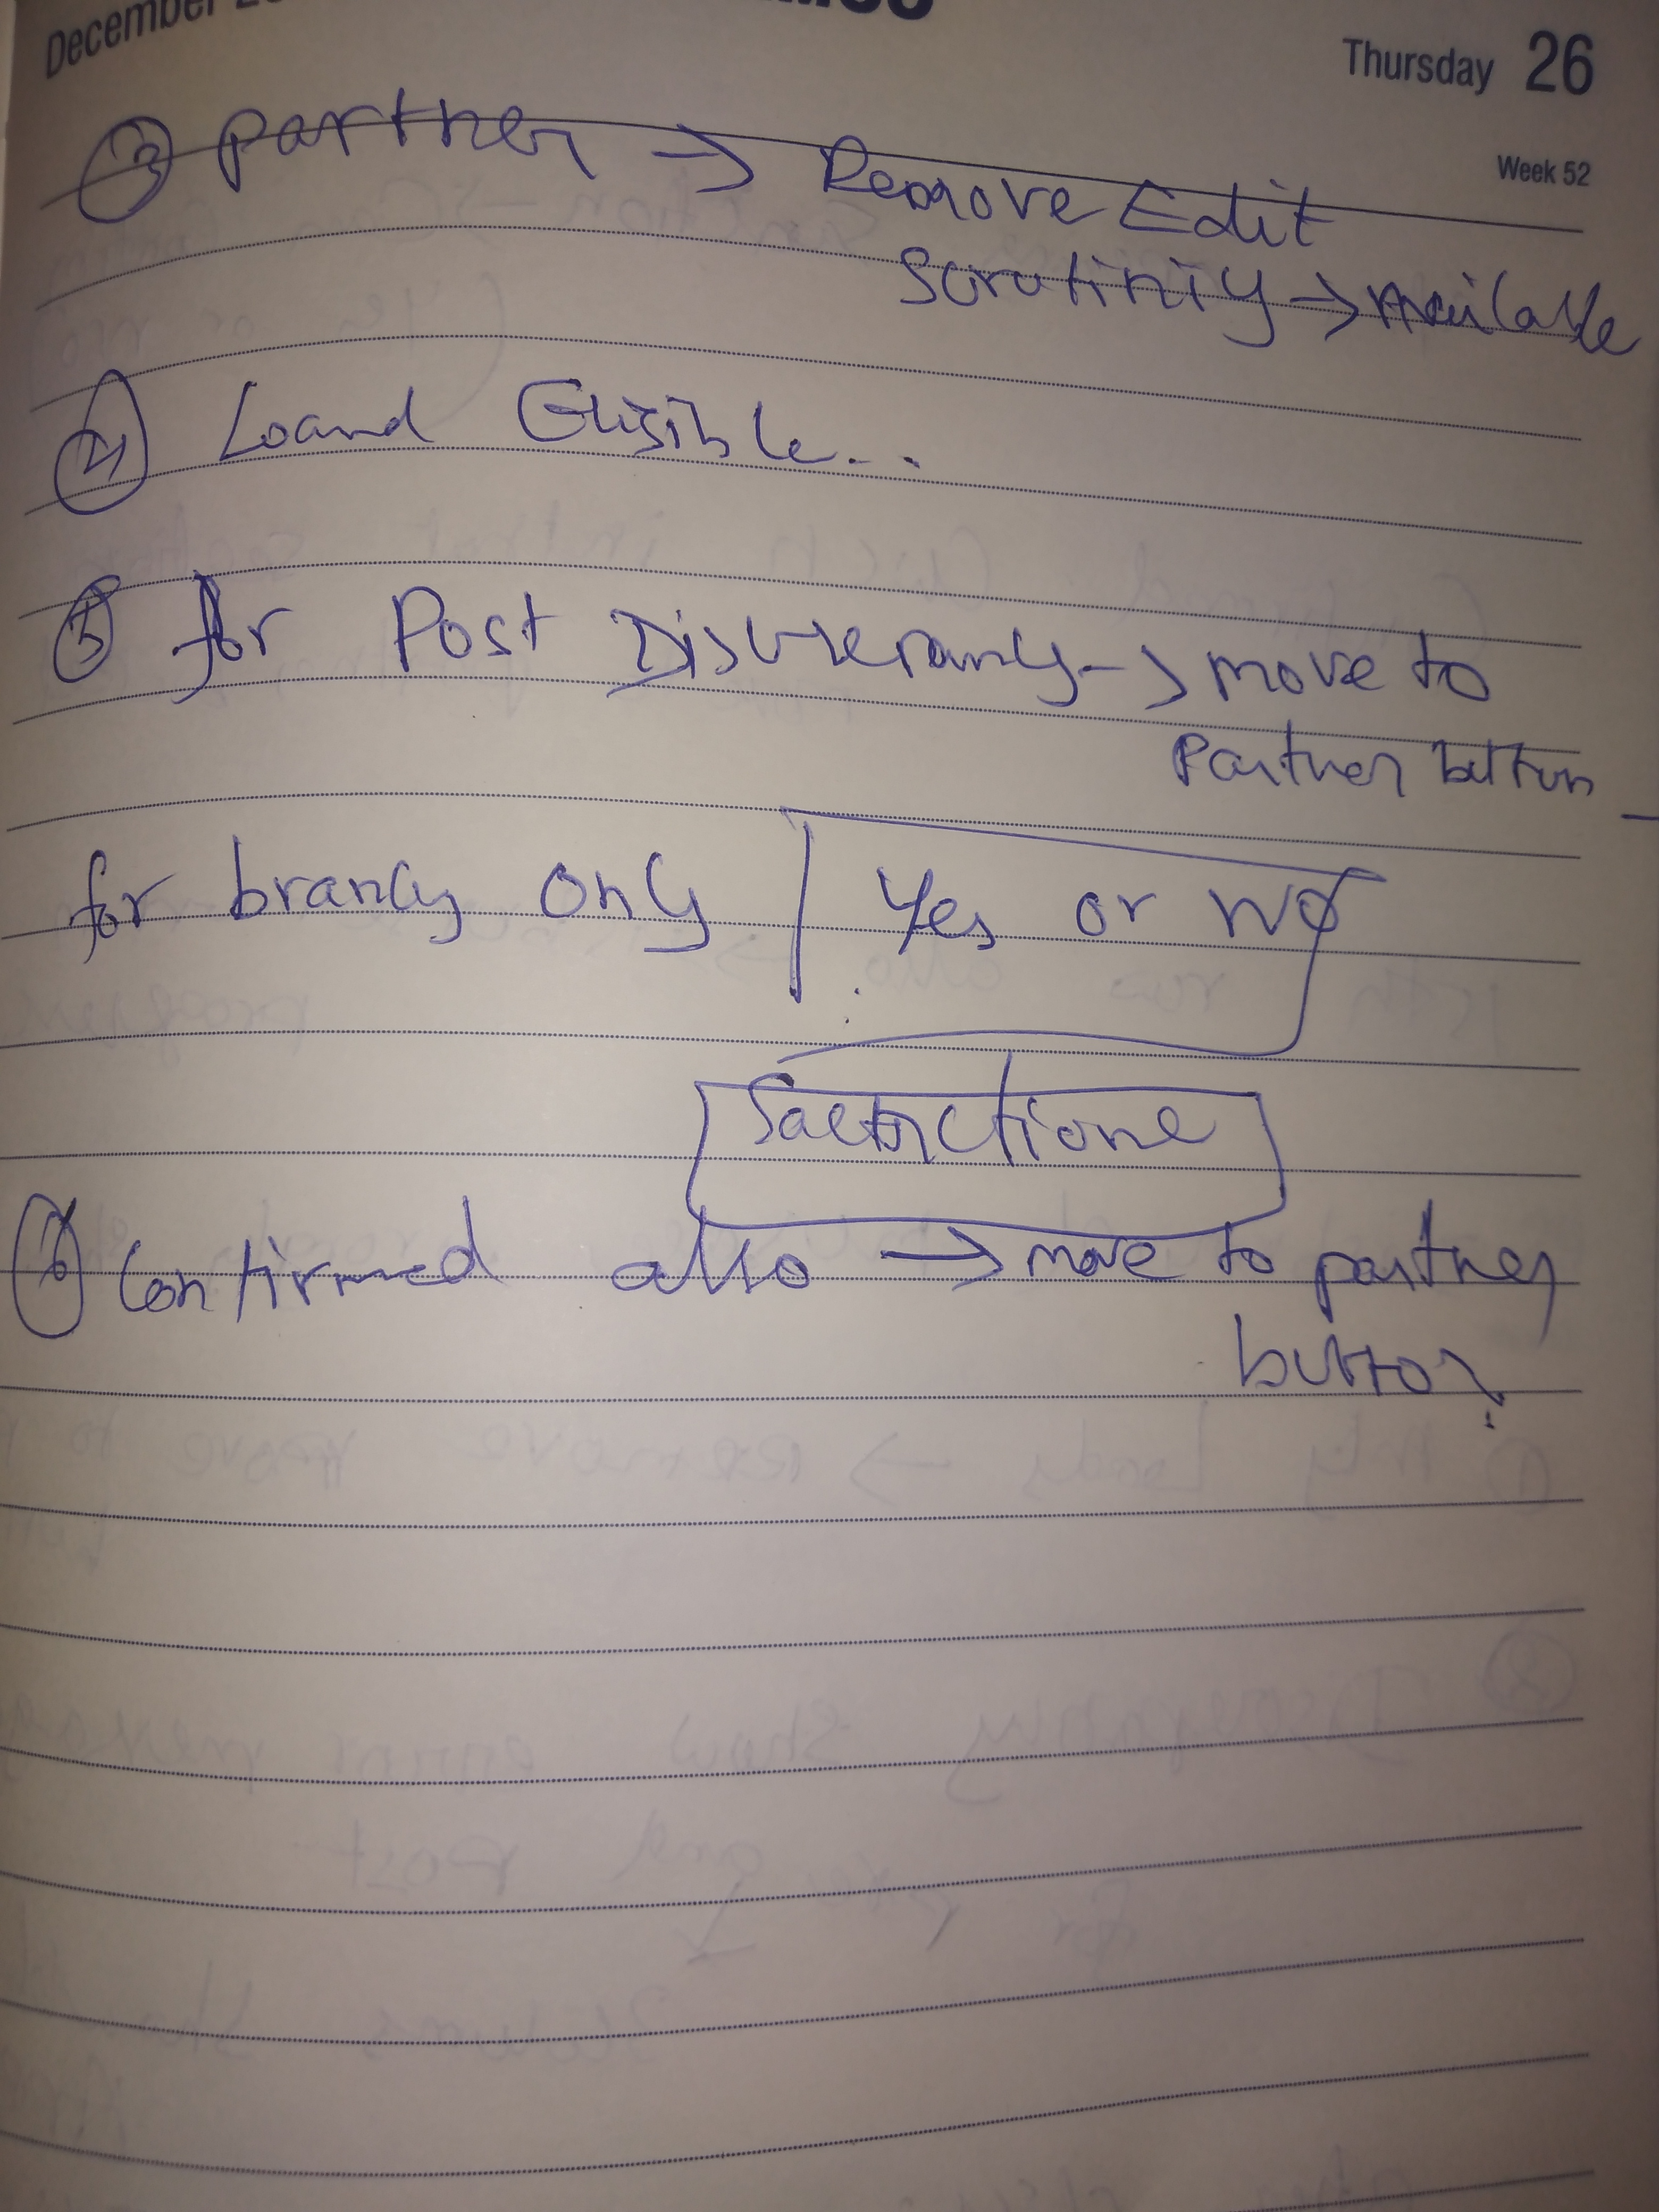 December
Thursday 26
Week 52
③ Partner → Remove Edit
Scrutiniy → Available
④ Loand Eligible...
⑤ for Post Discrepancy → move to
Partner button
for branch only | Yes or No
⑥ Confirmed also → move to partner
button